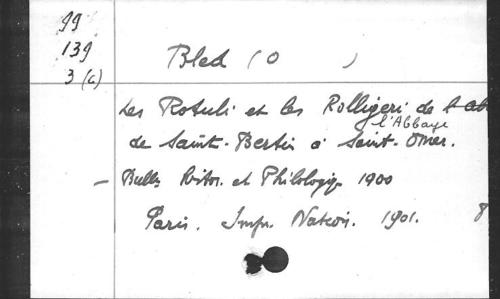 99
139
3 (6)
Bled (O )
Les Rotuli et les Rolligeri de l'ab
l'Abbaye
de Saint-Bertin à Saint-Omer.
– Bull. histor. et Philologiq. 1900
Paris. Impr. Nation. 1901. 8